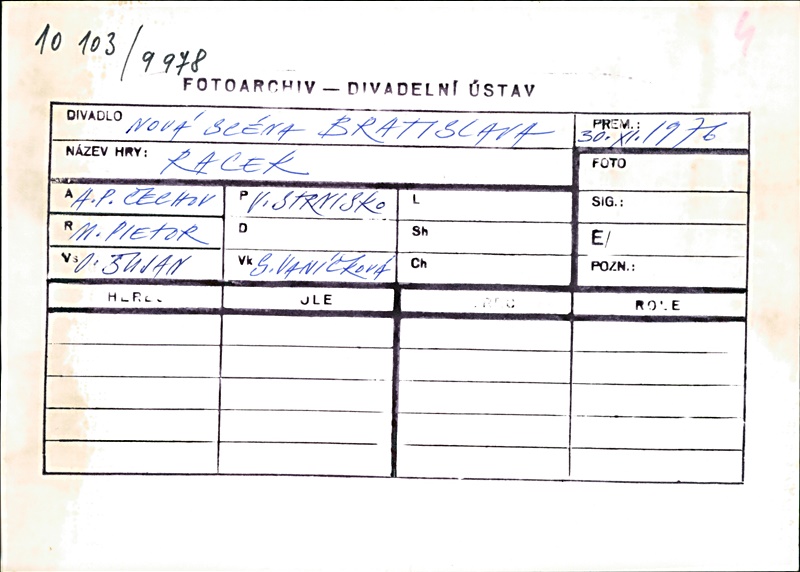 10 103/9978
FOTOARCHIV — DIVADELNÍ ÚSTAV
DIVADLO NOVÁ SCÉNA BRATISLAVA
PREM.: 30. XI. 1976
NÁZEV HRY: RACEK
FOTO
A A.P. ČECHOV P V. STRNISKO L
SIG.:
R M. PIETOR D Sh
E/
Vs V. ŠUJAN Vk S. VANÍČKOVÁ Ch
POZN.:
ROLE